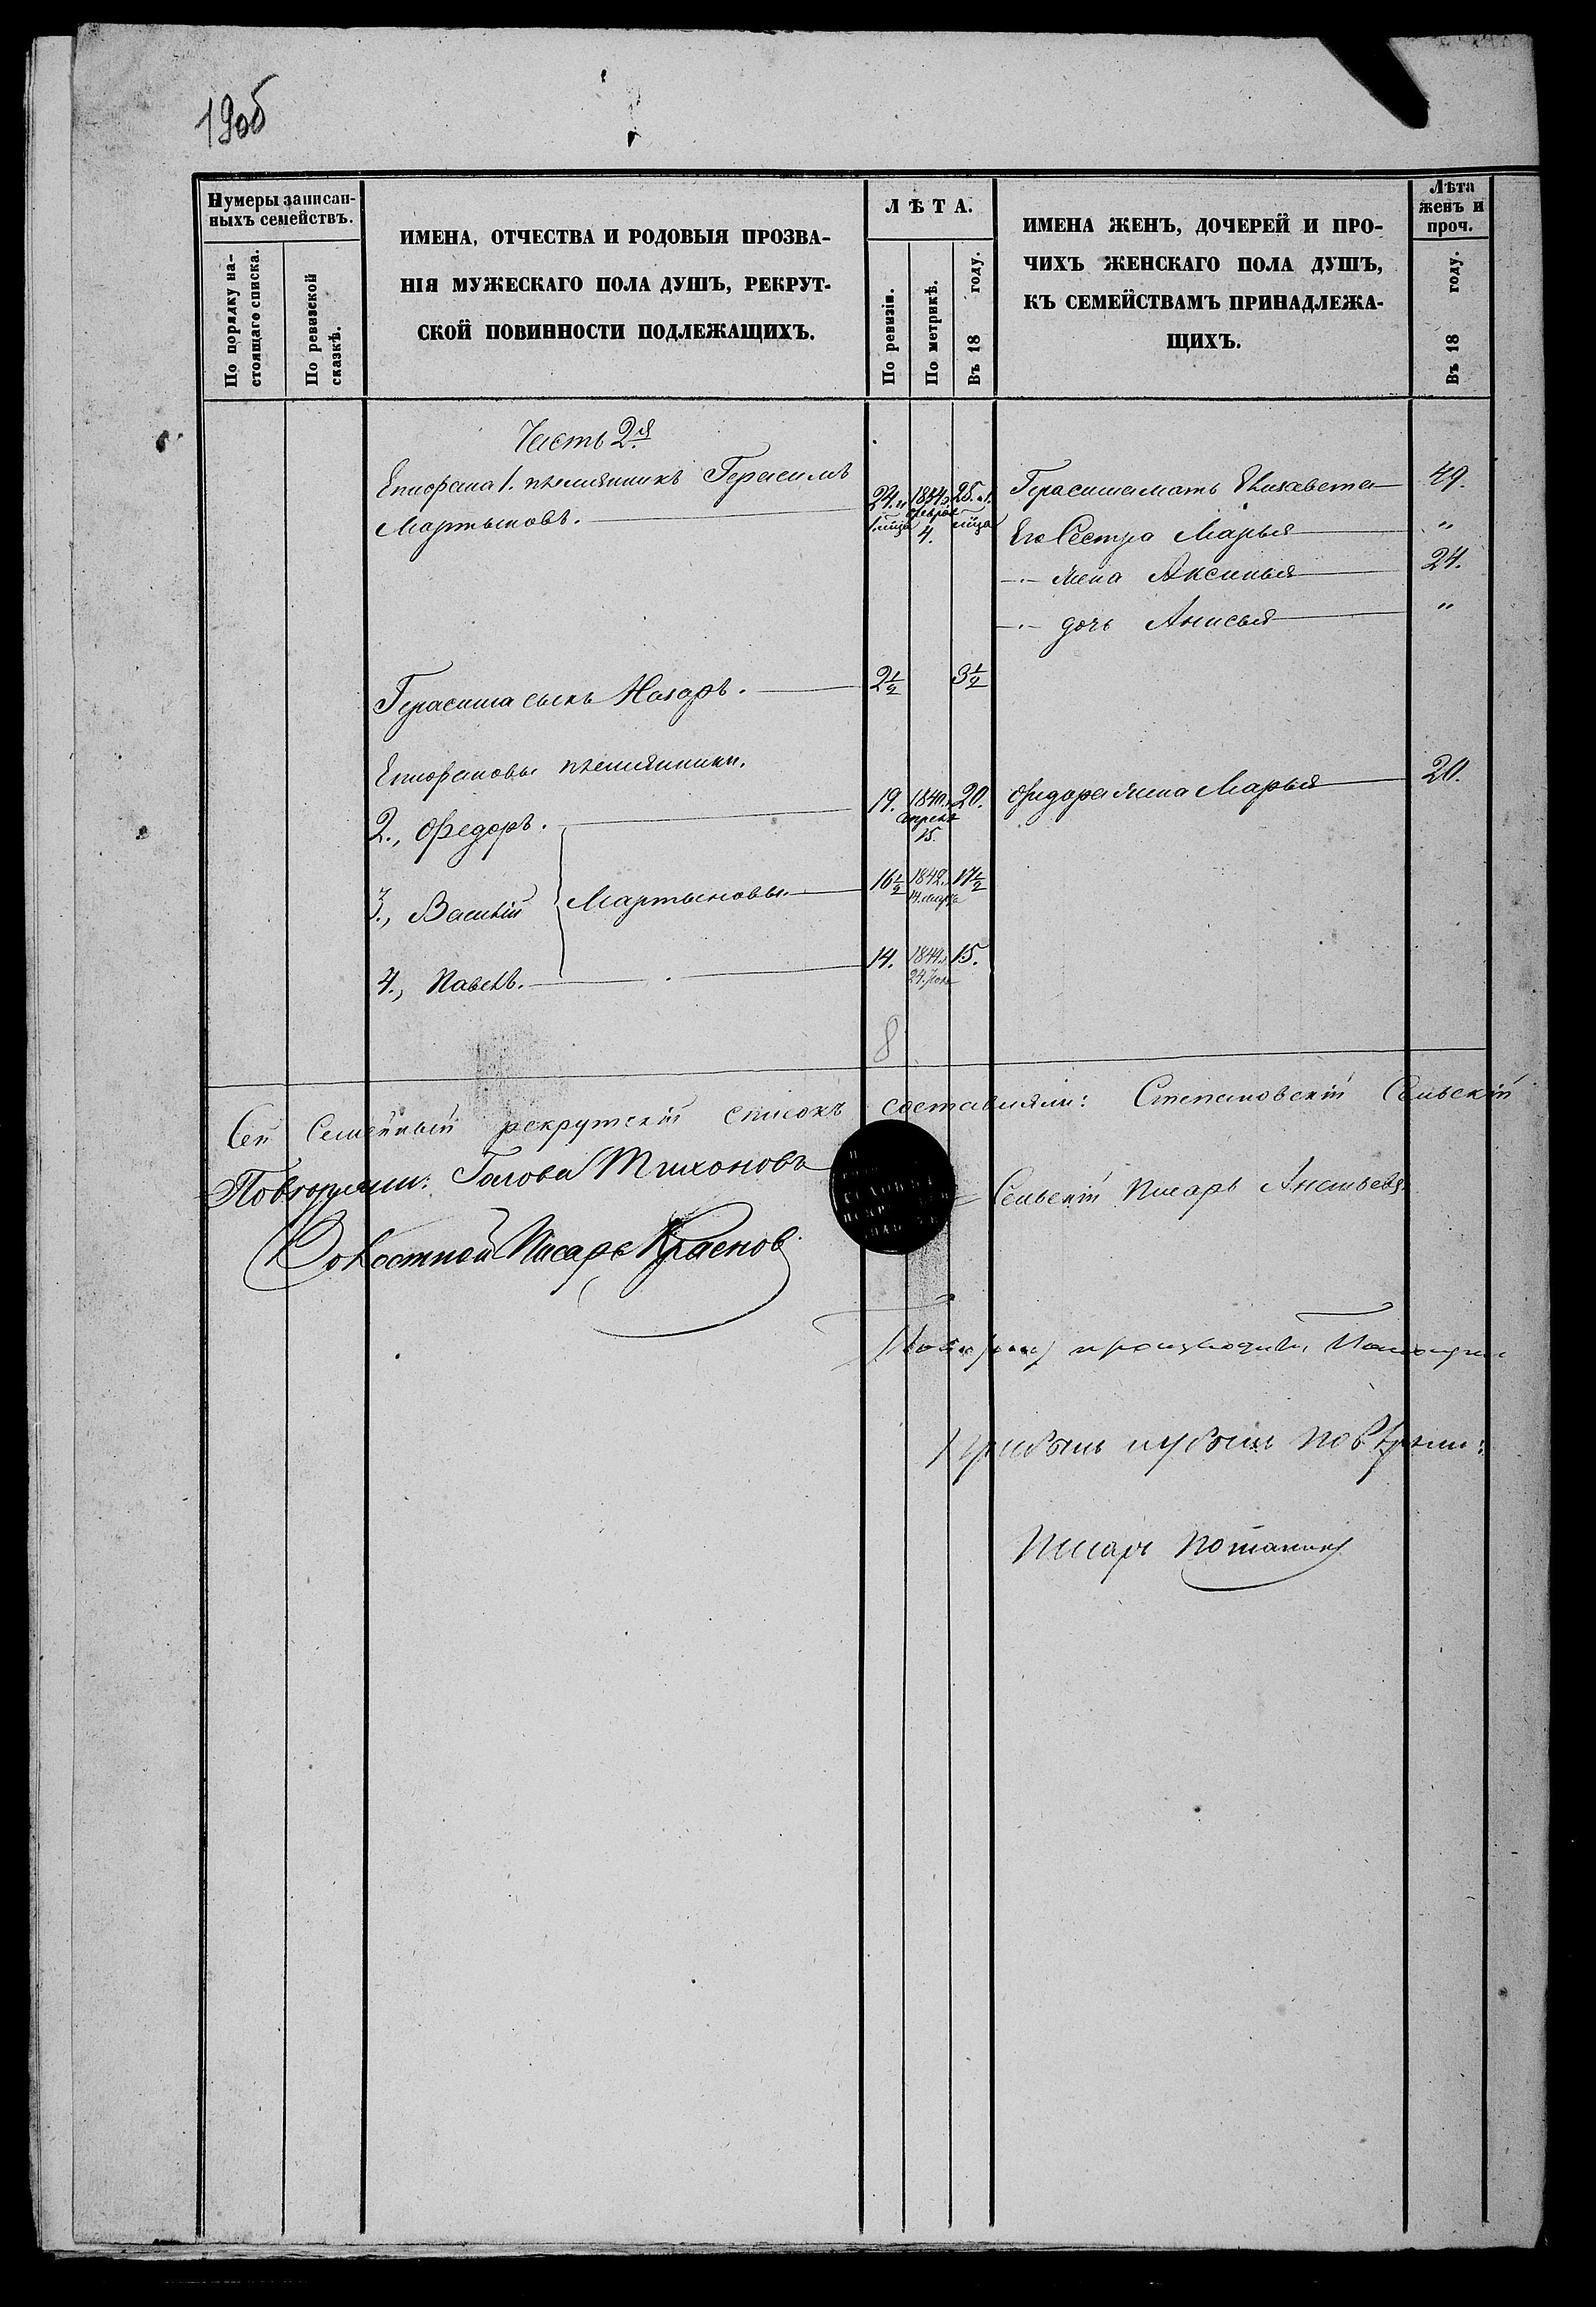 190б
Нумеры записан-
ныхъ семействъ.
По порядку на-
стоящаго списка.
По ревизской
сказкѣ.
ИМЕНА, ОТЧЕСТВА И РОДОВЫЯ ПРОЗВА-
НІЯ МУЖЕСКАГО ПОЛА ДУШЪ, РЕКРУТ-
СКОЙ ПОВИННОСТИ ПОДЛЕЖАЩИХЪ.
ЛѢТА.
По ревизіи.
По метрикѣ.
Въ 18 году.
ИМЕНА ЖЕНЪ, ДОЧЕРЕЙ И ПРО-
ЧИХЪ ЖЕНСКАГО ПОЛА ДУШЪ,
КЪ СЕМЕЙСТВАМЪ ПРИНАДЛЕЖА-
ЩИХЪ.
Лѣта
женъ и
проч.
Въ 18 году.
Часть 2я
Епифана 1. племянникъ Герасимъ
Мартыновъ. 24. и 1 мца 1834 февраля 4. 25. и 1 мца
Герасима мать Елизавета 49.
Его Сестра Марья "
-"- жена Аксинья 24.
-"- дочь Анисья "
Герасима сынъ Назаръ. 2½ 3½
Епифановы племянники.
2., Федоръ. 19. 1840. апреля 15. 20. Федора жена Марья 20.
3., Василій Мартыновы. 16½ 1842. 14. марта 17½
4., Павелъ. 14. 1844. 24. Іюня 15.
8
Сей Семейный рекрутскій списокъ составляли: Степановскій Сельскій
Повѣряли: Голова Тихоновъ
Сельскій Писарь Ананьевъ
Волостной Писарь Красновъ
Прибыль и убыль повѣрялъ:
Писарь Потанинъ